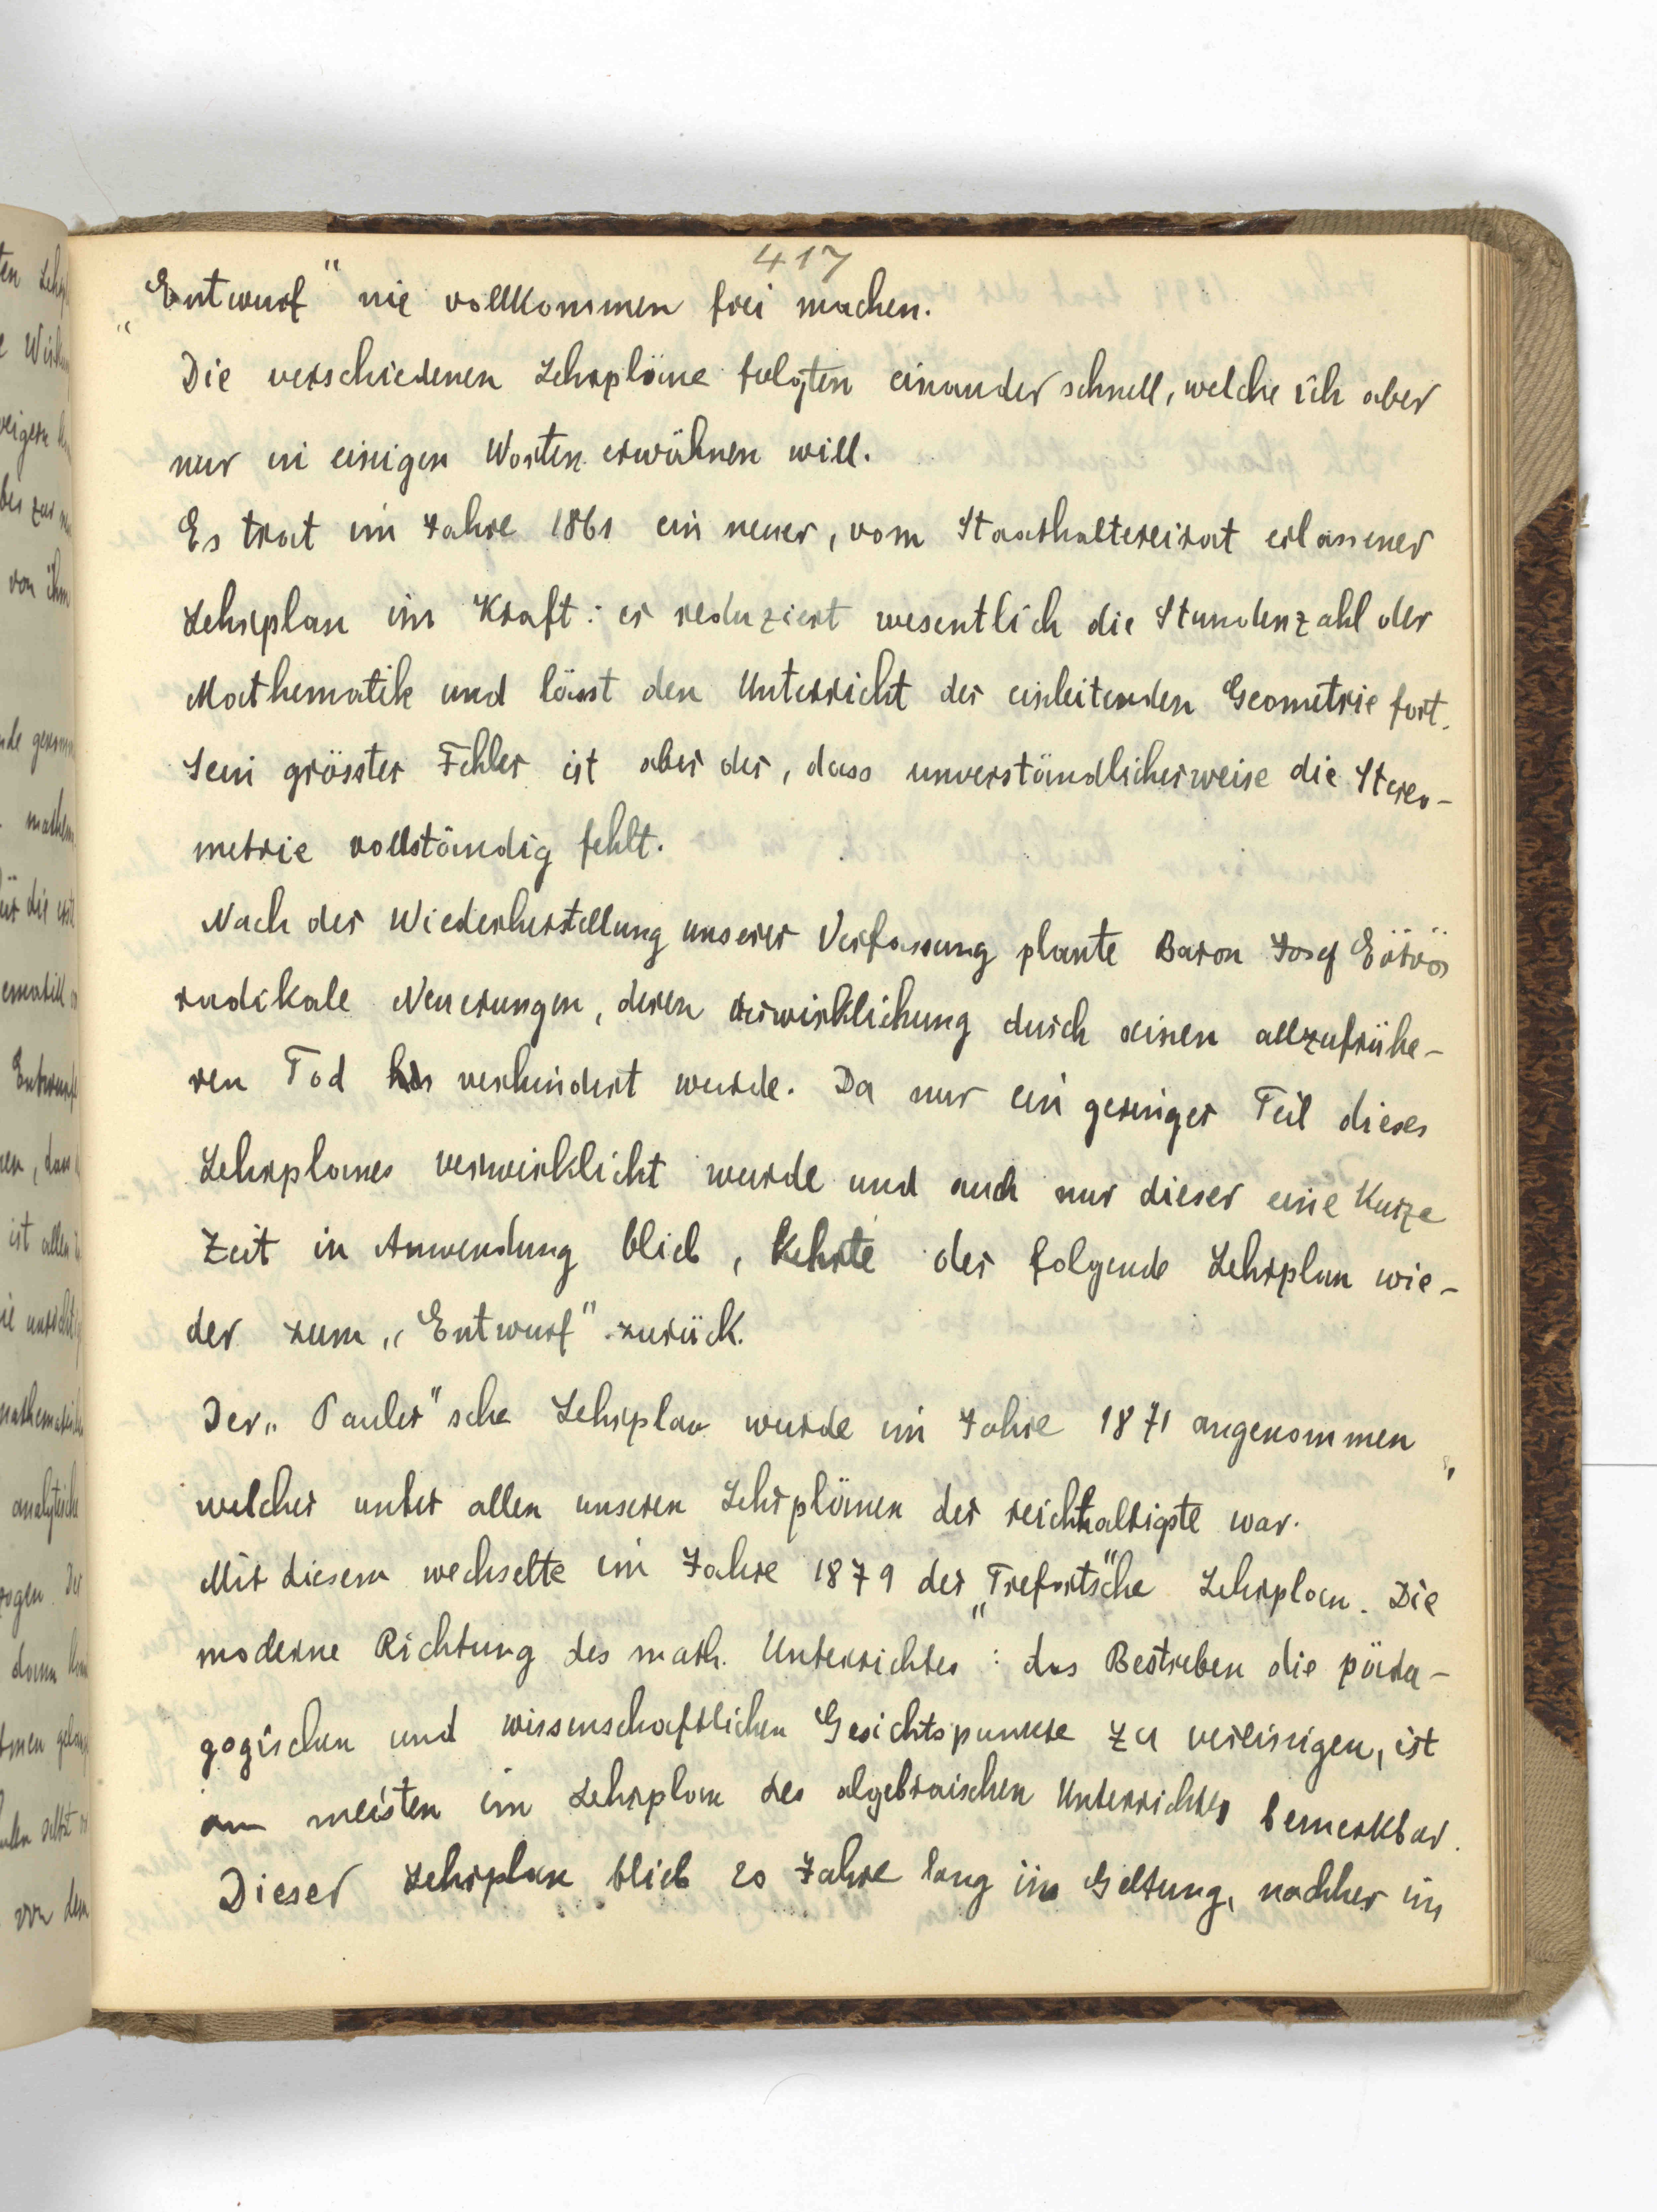 417
„Entwurf" nie vollkommen frei machen.
Die verschiedenen Lehrpläne folgten einander schnell, welche ich aber
nur in einigen Worten erwähnen will.
Es trat im Jahre 1861 ein neuer, vom Staathaltereirat erlassener
Lehrplan in Kraft: er reduziert wesentlich die Stundenzahl der
Mathematik und lässt den Unterricht der einleitenden Geometrie fort.
Sein grösster Fehler ist aber der, dass unverständlicherweise die Stereo-
metrie vollständig fehlt.
Nach der Wiederherstellung unserer Verfassung plante Baron Josef Eötvös
radikale Neuerungen, deren Verwirklichung durch seinen allzufrühe-
ren Tod verhindert wurde. Da nur ein geringer Teil dieses
Lehrplanes verwirklicht wurde und auch nur dieser eine kurze
Zeit in Anwendung blieb, kehrte der folgende Lehrplan wie-
der zum „Entwurf" zurück.
Der „Pauler"sche Lehrplan wurde im Jahre 1871 angenommen,
welcher unter allen unseren Lehrplänen der reichhaltigste war.
Mit diesem wechselte im Jahre 1879 der „Trefort"sche Lehrplan. Die
moderne Richtung des math. Unterrichtes: das Bestreben die päda-
gogischen und wissenschaftlichen Gesichtspunkte zu vereinigen, ist
am meisten im Lehrplan des algebraischen Unterrichtes bemerkbar.
Dieser Lehrplan blieb 20 Jahre lang in Geltung, nachher im